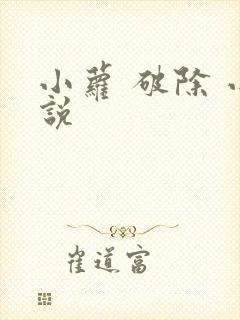 小蘿 破除
説
崔道富